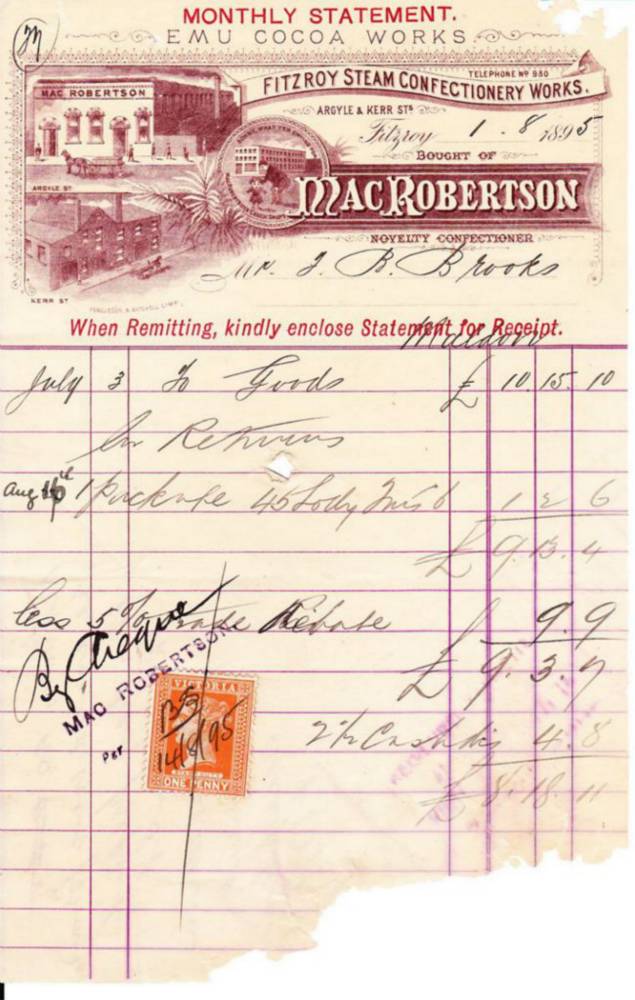 MONTHLY STATEMENT.
EMU COCOA WORKS
TELEPHONE Nº 930
FITZROY STEAM CONFECTIONERY WORKS.
MAC ROBERTSON
ARGYLE & KERR STS
Fitzroy 1 . 8 1895
BOUGHT OF
ARGYLE ST
MACROBERTSON
NOVELTY CONFECTIONER
Mr. J. B. Brooks
KERR ST
Maldon
When Remitting, kindly enclose Statement for Receipt.
July 3 To Goods £ 10.15.10
Returns
Aug 1 Package 1 2 6
£ 9.13.4
less 5% Trade Rebate 9.9
£ 9.3.7
By Cheque
MAC ROBERTSON
Per
VICTORIA
14/8/95
ONE PENNY
2½ Cash dis 4.8
£ 8.18.11